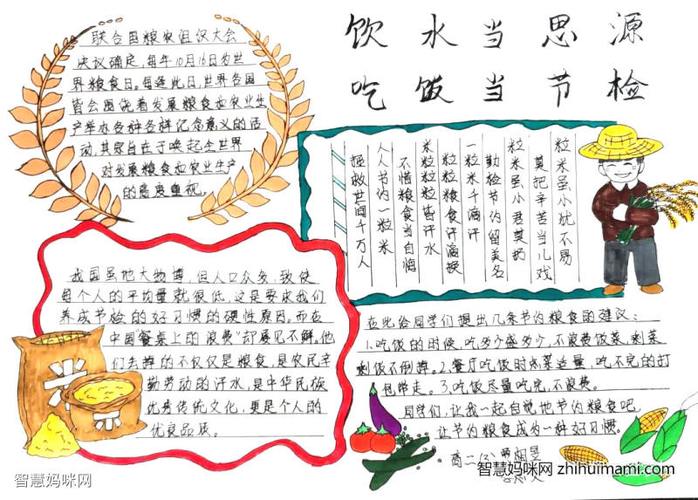 饮水当思源
吃饭当节检
联合国粮农组织大会
决议确定，每年10月16日为世
界粮食日。每逢此日，世界各国
皆会围绕着发展粮食和农业生
产举办各种各样纪念意义的活
动，其宗旨在于唤起全世界
对发展粮食和农业生产
的高度重视。
粒米虽小犹不易
莫把辛苦当儿戏
粒米虽小君莫扔
勤俭节约留美名
一粒米千滴汗
粒粒粮食汗滴换
米粒粒粒皆汗水
不惜粮食当自悔
人人节约一粒米
拯救世间千万人
我国虽地大物博，但人口众多，致使
每个人的平均量就很低，这是要求我们
养成节俭的好习惯的硬性原因。而在
中国"餐桌上的浪费"却屡见不鲜。他
们丢掉的不仅仅是粮食，是农民辛
勤劳动的汗水，是中华民族
优秀传统文化，更是个人的
优良品质。
米
在此给同学们提出几条节约粮食的建议：
1.吃饭的时候，吃多少盛多少，不浪费饭菜，剩菜
剩饭不倒掉。2.餐厅吃饭时点菜适量，吃不完的打
包带走。3.吃饭尽量吃完，不浪费。
同学们，让我一起自觉地节约粮食吧，
让节约粮食成为一种好习惯。
高二(2)
智慧妈咪网
智慧妈咪网 zhihuimami.com